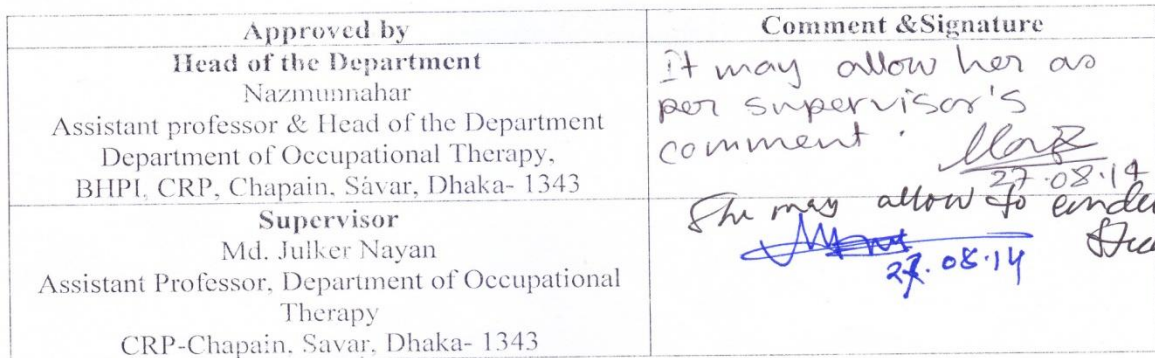 Approved by
Comment &Signature
Head of the Department
Nazmunnahar
Assistant professor & Head of the Department
Department of Occupational Therapy,
BHPI, CRP, Chapain, Savar, Dhaka- 1343
It may allow her as
per supervisor's
comment.
27.08.14
Supervisor
Md. Julker Nayan
Assistant Professor, Department of Occupational
Therapy
CRP-Chapain, Savar, Dhaka- 1343
She may allow to
27.08.14